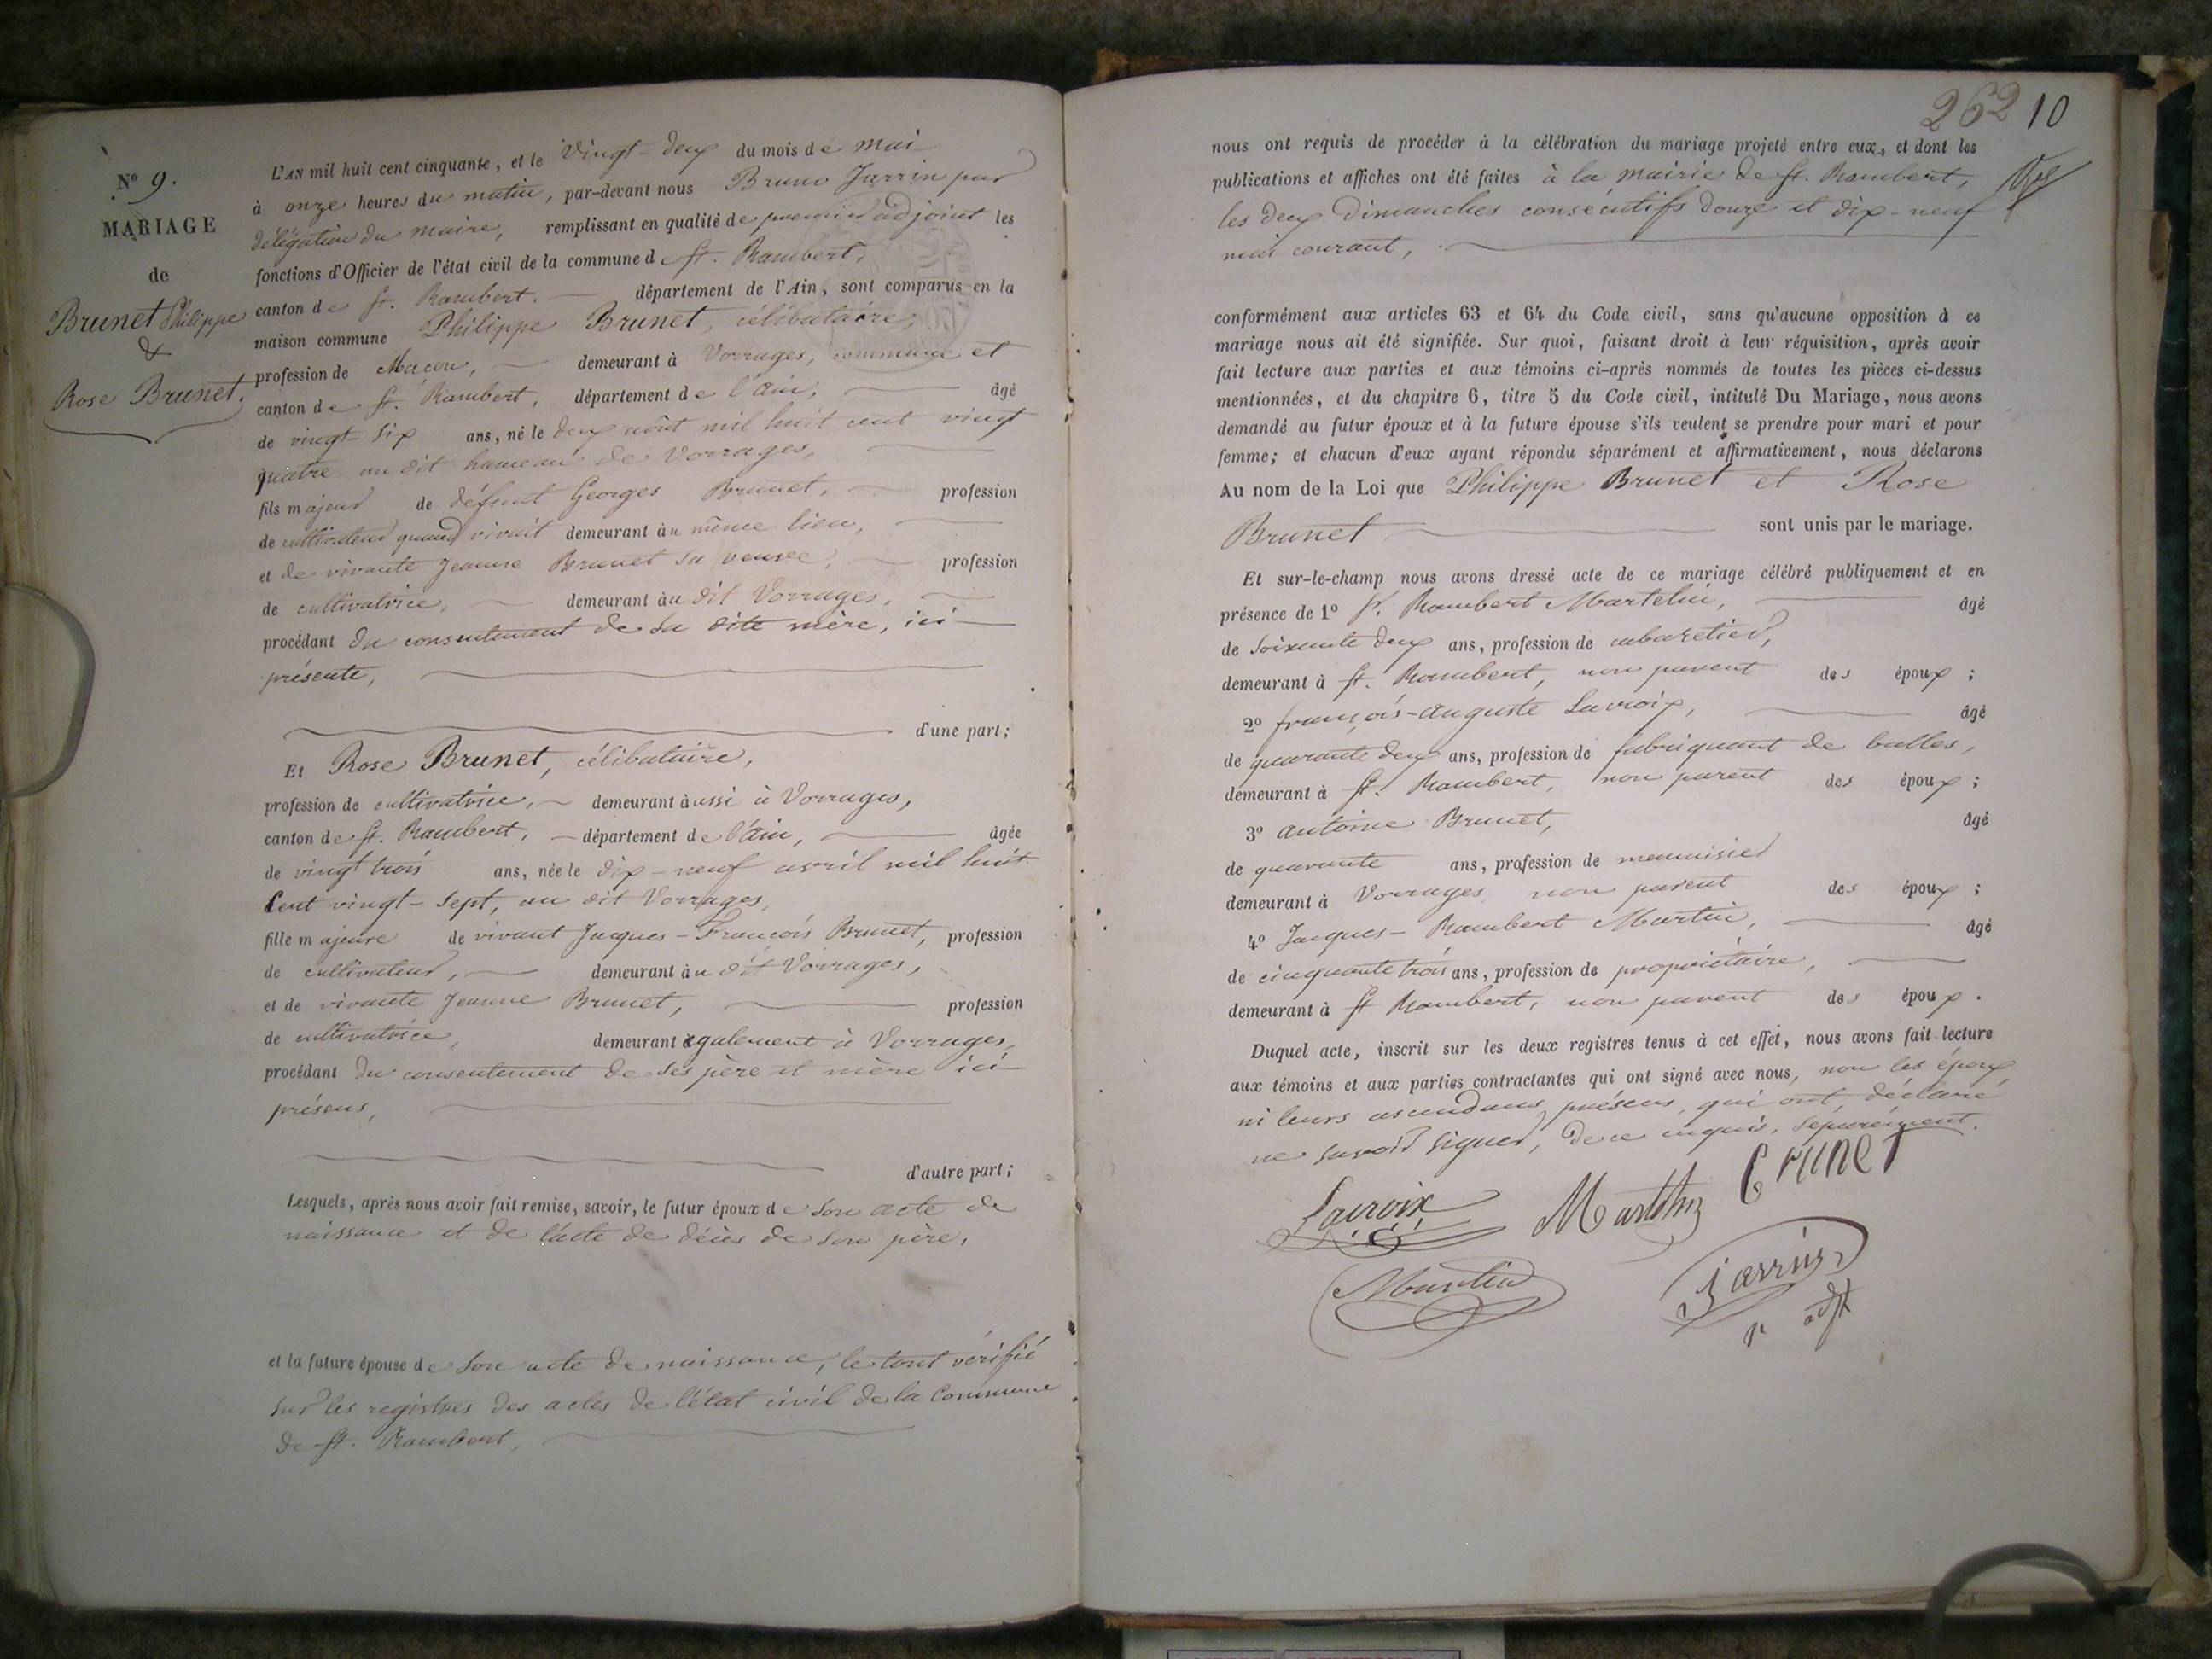 N° 9.
MARIAGE
de
Brunet Philippe
&
Rose Brunet.
L'AN mil huit cent cinquante, et le Vingt-deux du mois de mai
à onze heures du matin, par-devant nous Bruno Jarrin par
délégation du maire, remplissant en qualité de premier adjoint les
fonctions d'Officier de l'état civil de la commune de St. Rambert,
canton de St. Rambert. département de l'Ain, sont comparus en la
maison commune Philippe Brunet, célibataire,
profession de Macon, demeurant à Vorrages, commune et
canton de St. Rambert, département de l'ain, âgé
de vingt-six ans, né le deux août mil huit cent vingt
quatre au dit hameau de Vorrages,
fils majeur de défunt Georges Brunet, profession
de cultivateur quand vivait demeurant au même lieu,
et de vivante Jeanne Brunet sa veuve, profession
de cultivatrice, demeurant au dit Vorrages,
procédant du consentement de sa dite mère, ici
présente,
d'une part;
Et Rose Brunet, célibataire,
profession de cultivatrice, demeurant aussi à Vorrages,
canton de St. Rambert, département de l'ain, âgée
de vingt trois ans, née le dix-neuf avril mil huit
Cent vingt-sept, au dit Vorrages,
fille majeure de vivant Jacques-François Brunet, profession
de cultivateur, demeurant au dit Vorrages,
et de vivante Jeanne Brunet, profession
de cultivatrice, demeurant également à Vorrages,
procédant du consentement de ses père et mère ici
présens,
d'autre part;
Lesquels, après nous avoir fait remise, savoir, le futur époux de son acte de
naissance et de l'acte de décès de son père,
et la future épouse de son acte de naissance, le tout vérifié
sur les registres des actes de l'état civil de la Commune
de St. Rambert,
262 10
nous ont requis de procéder à la célébration du mariage projeté entre eux, et dont les
publications et affiches ont été faites à la mairie de St. Rambert,
les deux Dimanches consécutifs douze et dix-neuf
mai courant,
conformément aux articles 63 et 64 du Code civil, sans qu'aucune opposition à ce
mariage nous ait été signifiée. Sur quoi, faisant droit à leur réquisition, après avoir
fait lecture aux parties et aux témoins ci-après nommés de toutes les pièces ci-dessus
mentionnées, et du chapitre 6, titre 5 du Code civil, intitulé Du Mariage, nous avons
demandé au futur époux et à la future épouse s'ils veulent se prendre pour mari et pour
femme; et chacun d'eux ayant répondu séparément et affirmativement, nous déclarons
Au nom de la Loi que Philippe Brunet et Rose
Brunet sont unis par le mariage.
Et sur-le-champ nous avons dressé acte de ce mariage célébré publiquement et en
présence de 1° St. Rambert Martelin, âgé
de soixante deux ans, profession de cabaretier,
demeurant à St. Rambert, non parent des époux;
2° françois-auguste Lacroix, âgé
de quarante deux ans, profession de fabriquant de balles,
demeurant à St. Rambert, non parent des époux;
3° antoine Brunet, âgé
de quarante ans, profession de menuisier
demeurant à Vorrages non parent des époux;
4° Jacques-Rambert Martin, âgé
de cinquante trois ans, profession de propriétaire,
demeurant à St Rambert, non parent des époux.
Duquel acte, inscrit sur les deux registres tenus à cet effet, nous avons fait lecture
aux témoins et aux parties contractantes qui ont signé avec nous, non les époux,
ni leurs ascendans présens, qui ont déclaré
ne savoir signer, de ce enquis, séparément.
Lacroix Brunet
Martin Jarrin
adjt